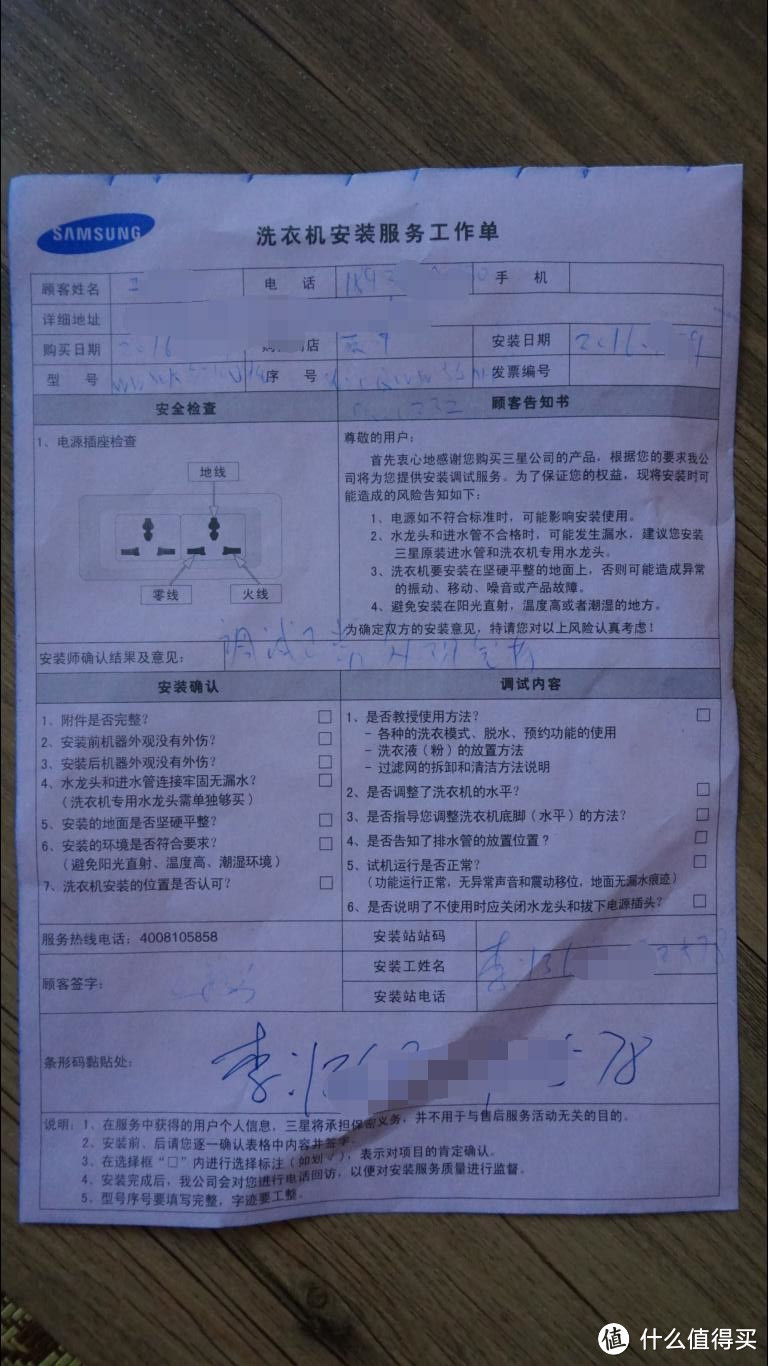 SAMSUNG
洗衣机安装服务工作单
顾客姓名 电 话 手 机
详细地址
购买日期 2016 店 安装日期 2016
型 号 序 号 发票编号
安全检查
1、电源插座检查
地线
零线 火线
顾客告知书
尊敬的用户：
首先衷心地感谢您购买三星公司的产品，根据您的要求我公
司将为您提供安装调试服务。为了保证您的权益，现将安装时可
能造成的风险告知如下：
1、电源如不符合标准时，可能影响安装使用。
2、水龙头和进水管不合格时，可能发生漏水，建议您安装
三星原装进水管和洗衣机专用水龙头。
3、洗衣机要安装在坚硬平整的地面上，否则可能造成异常
的振动、移动、噪音或产品故障。
4、避免安装在阳光直射，温度高或者潮湿的地方。
为确定双方的安装意见，特请您对以上风险认真考虑！
安装师确认结果及意见： 调试正常外观完好
安装确认
1、附件是否完整？ □
2、安装前机器外观没有外伤？ □
3、安装后机器外观没有外伤？ □
4、水龙头和进水管连接牢固无漏水？ □
（洗衣机专用水龙头需单独够买）
5、安装的地面是否坚硬平整？ □
6、安装的环境是否符合要求？ □
（避免阳光直射、温度高、潮湿环境）
7、洗衣机安装的位置是否认可？ □
调试内容
1、是否教授使用方法？ □
- 各种的洗衣模式、脱水、预约功能的使用
- 洗衣液（粉）的放置方法
- 过滤网的拆卸和清洁方法说明
2、是否调整了洗衣机的水平？ □
3、是否指导您调整洗衣机底脚（水平）的方法？ □
4、是否告知了排水管的放置位置？ □
5、试机运行是否正常？ □
（功能运行正常，无异常声音和震动移位，地面无漏水痕迹）
6、是否说明了不使用时应关闭水龙头和拔下电源插头？ □
服务热线电话：4008105858
顾客签字：
安装站站码
安装工姓名 李
安装站电话
条形码黏贴处： 李 78
说明：1、在服务中获得的用户个人信息，三星将承担保密义务，并不用于与售后服务活动无关的目的。
2、安装前、后请您逐一确认表格中内容并签字。
3、在选择框“□”内进行选择标注（如划√），表示对项目的肯定确认。
4、安装完成后，我公司会对您进行电话回访，以便对安装服务质量进行监督。
5、型号序号要填写完整，字迹要工整。
值 什么值得买